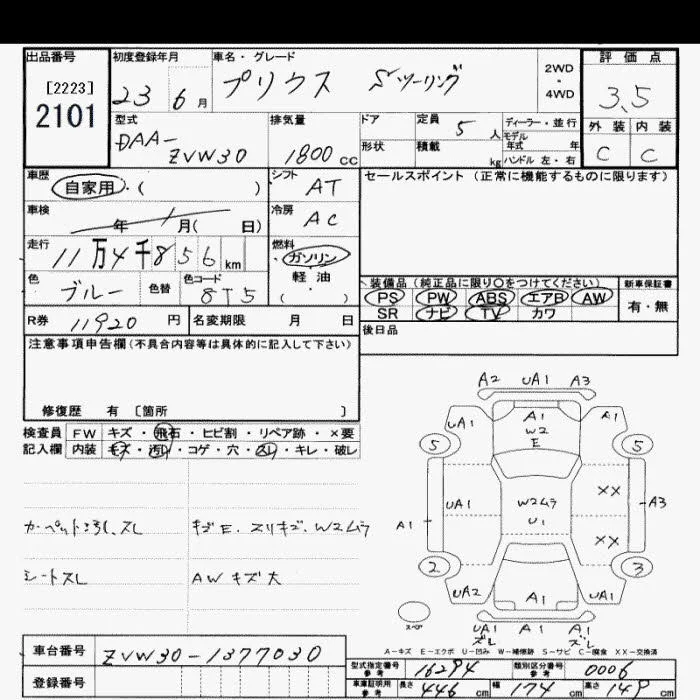 出品番号 初度登録年月 車名・グレード 評価点
[2223]
2101
23 6月 プリウス Sツーリング 2WD・4WD 3.5
型式 排気量 ドア 定員 5人 ディーラー・並行 外装 内装
モデル
DAA-ZVW30 1800cc 形状 積載 kg 年式 年 C C
ハンドル 左・右
車歴 自家用・( ) シフト AT セールスポイント(正常に機能するものに限ります)
車検 年 / 月( 日) 冷房 AC
走行 11万4千856km 燃料 ガソリン・軽油( )
色 ブルー 色替 色コード 8T5
装備品(純正品に限り○をつけてください) 新車保証書
PS PW ABS エアB AW 有・無
SR ナビ TV カワ
R券 11920円 名変期限 月 日 後日品
注意事項申告欄(不具合内容等は具体的に記入して下さい)
修復歴 有 [箇所 ]
検査員 FW キズ・飛石・ヒビ割・リペア跡・×要
記入欄 内装 キズ・汚れ・コゲ・穴・スレ・キレ・破レ
A2 UA1 A3
UA1 A1 A1
W2
E
5 5
UA1 W2ムラ XX A3
A1 U1
XX
2 3
UA2 A1 UA1
スペア
UA1 A1 A1
スレ スレ
カーペット汚れ、スレ キズE、スリキズ、W2ムラ
シートスレ AWキズ大
A-キズ E-エクボ U-凹み W-補修跡 S-サビ C-腐食 XX-交換済
車台番号 ZVW30-1377030
登録番号
型式指定番号 参考 16294 類別区分番号 参考 0006
車庫証明用 参考 長さ 446cm 幅 174cm 高さ 149cm